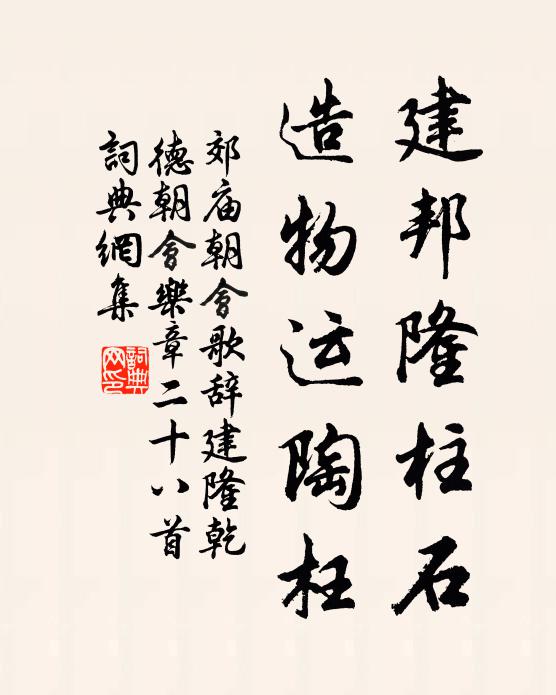 建邦隆柱石
造物运陶枉
郊庙朝会歌辞建隆乾
德朝会樂章二十八首
詞典網集
詞典網印